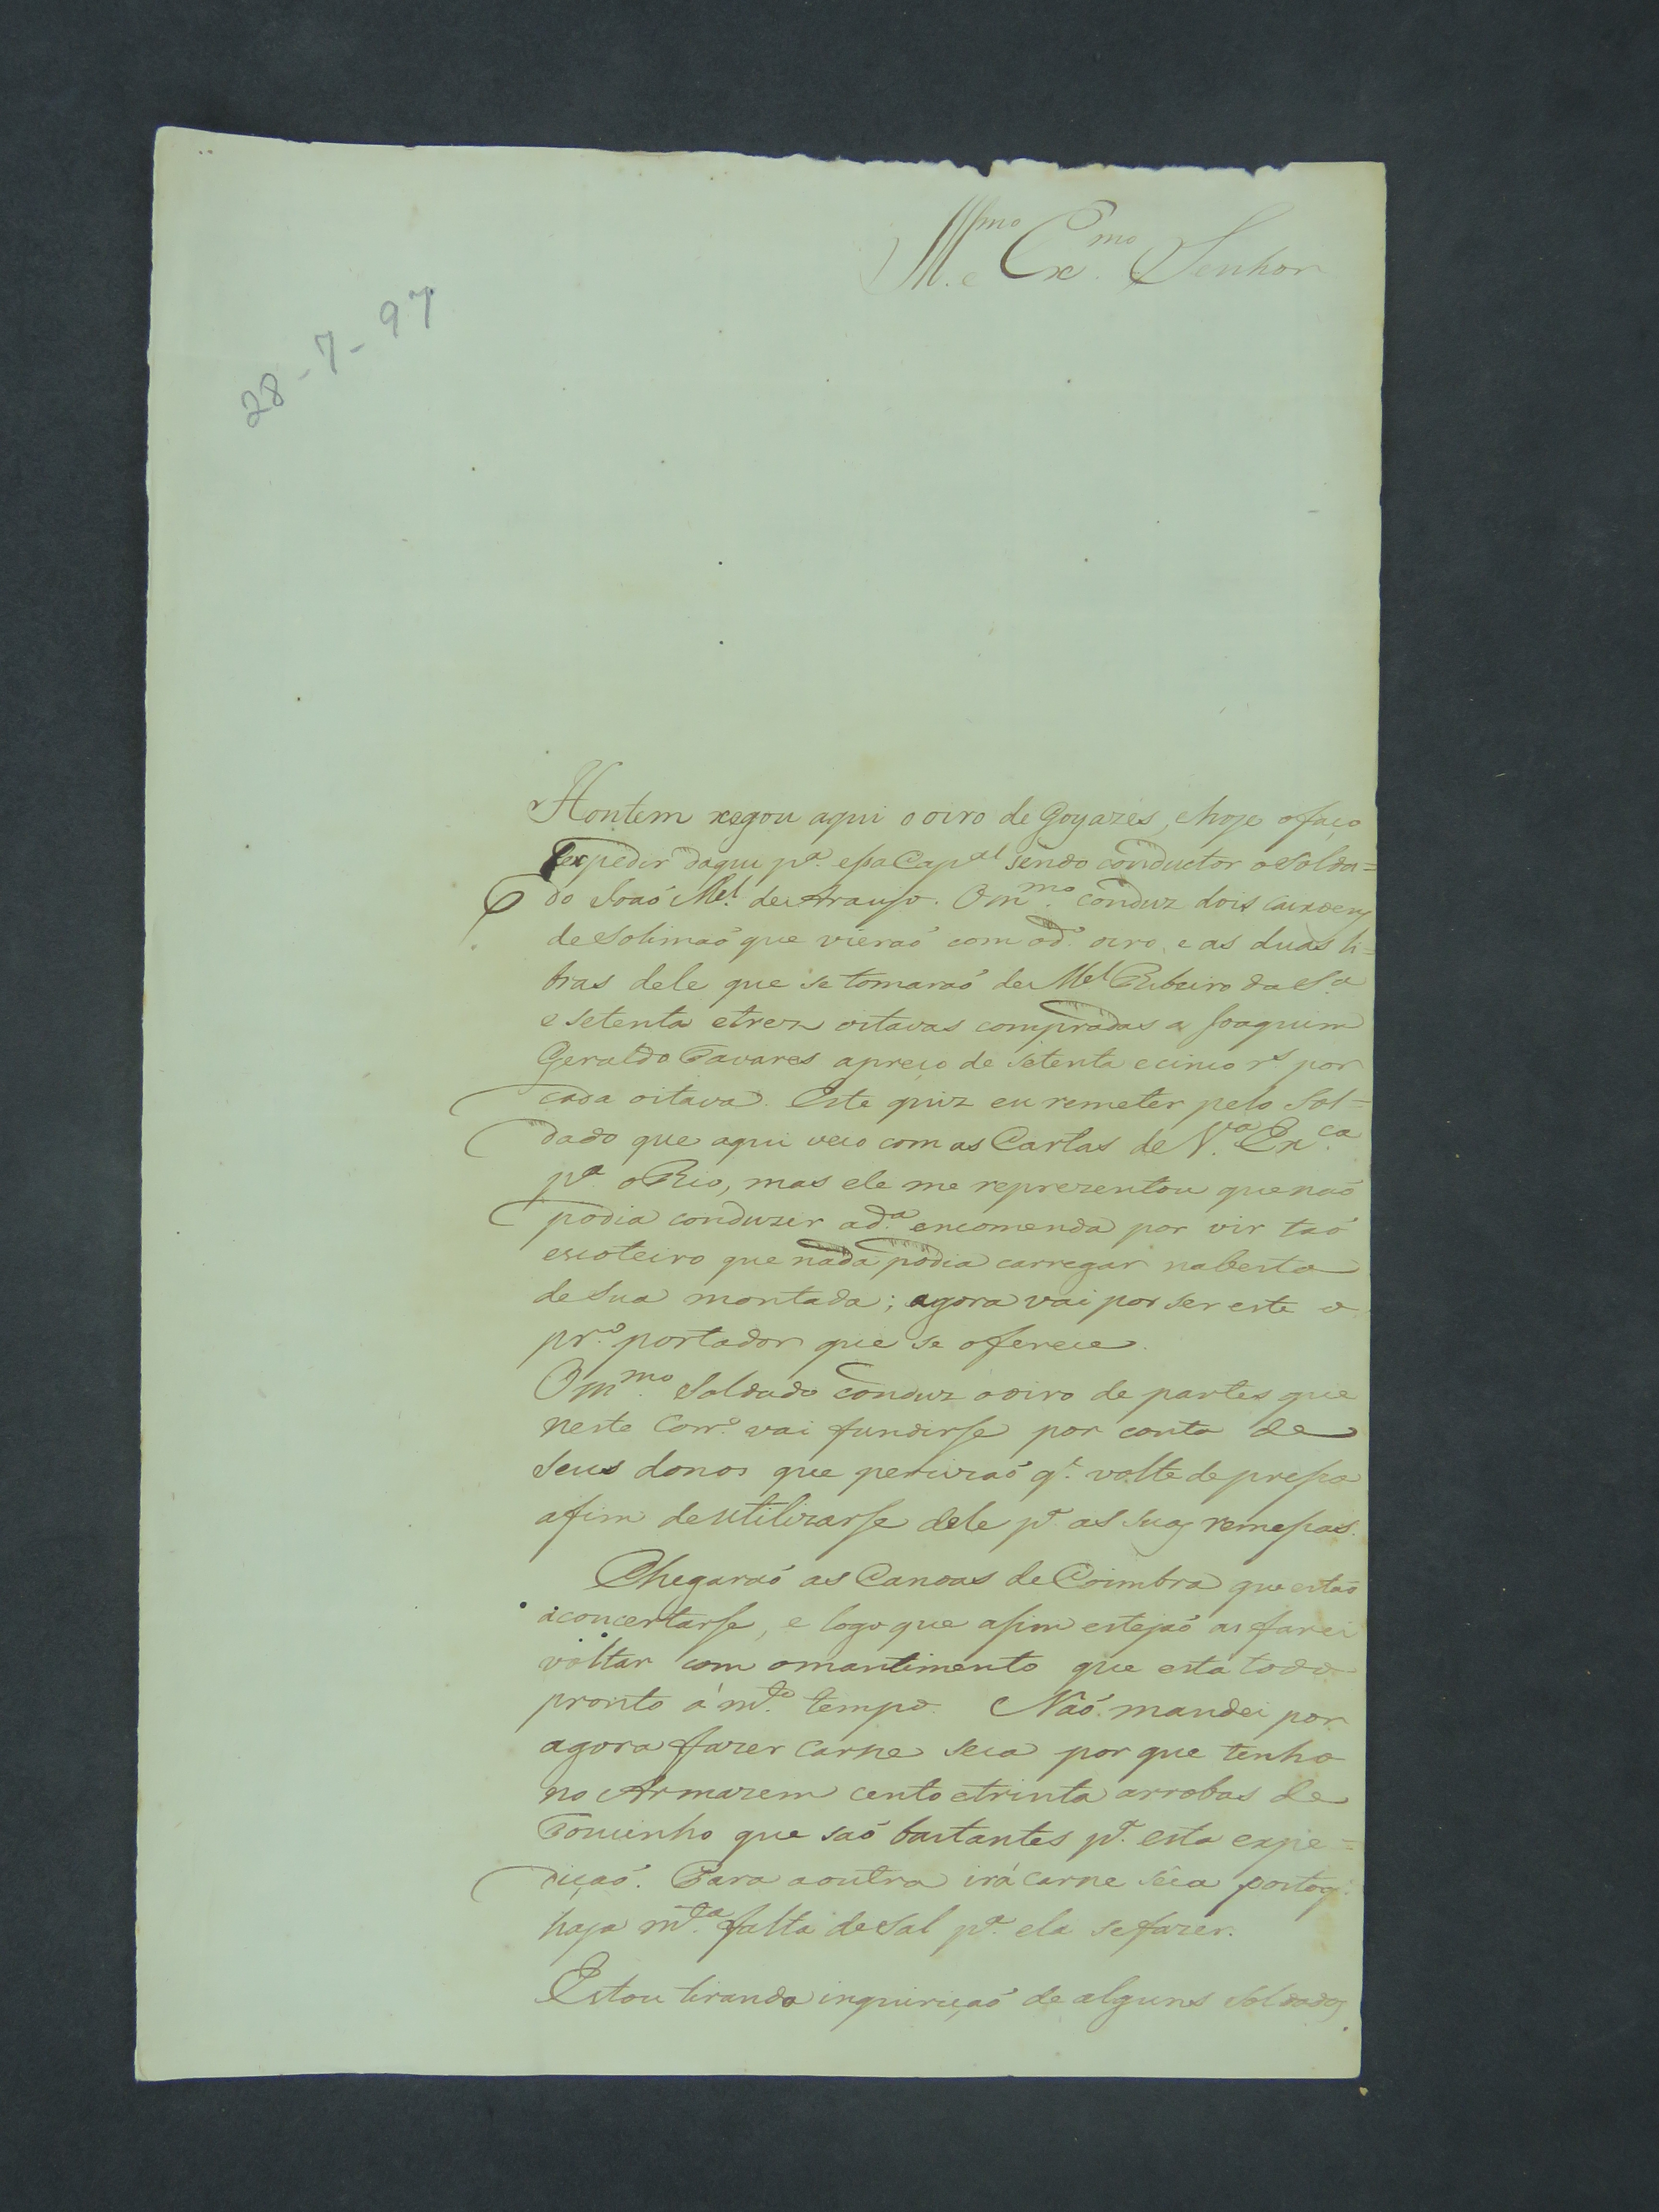 Illmo e Exmo Senhor
28-7-97
Hontem xegou aqui o oiro de Goyazes, e hoje o faço
expedir daqui pa. essa Capal sendo conductor o Solda=
do Joaó Mel. de Araujo. O mmo. conduz dois caixoens
de Solimaó que vieraó com o do. oiro, e as duas li=
bras dele que se tomaraó de Mel Ribeiro da Sa
e setenta e trez oitavas compradas a Joaquim
Geraldo Tavares a preço de setenta e cinco rs por
cada oitava. Este quiz eu remeter pelo Sol=
dado que aqui veio com as Cartas de Va. Exca.
pa o Rio, mas ele me reprezentou que naó
podia conduzir a da. encomenda por vir taó
escoteiro que nada podia carregar na besta
de sua montada; agora vai por ser este o
pro. portador que se oferece.
O mmo. Soldado conduz o oiro de partes que
neste Corro. vai fundirse por conta de
seus donos que percizaó qe. volte de pressa
afim de utilizarse dele pa. as suas remessas.
Chegaraó as Canoas de Coimbra que estaó
a concertarse, e logo que assim estejaó as farei
voltar com o mantimento que está todo
pronto á mto. tempo. Naó mandei por
agora fazer carne seca por que tenho
no Armazem cento e trinta arrobas de
Toucinho que saó bastantes pa. esta expe=
diçaó. Para a outra irá carne sêca postoq.
haja mta. falta de Sal pa. ela se fazer.
Estou tirando inquiriçaó de alguns Soldados